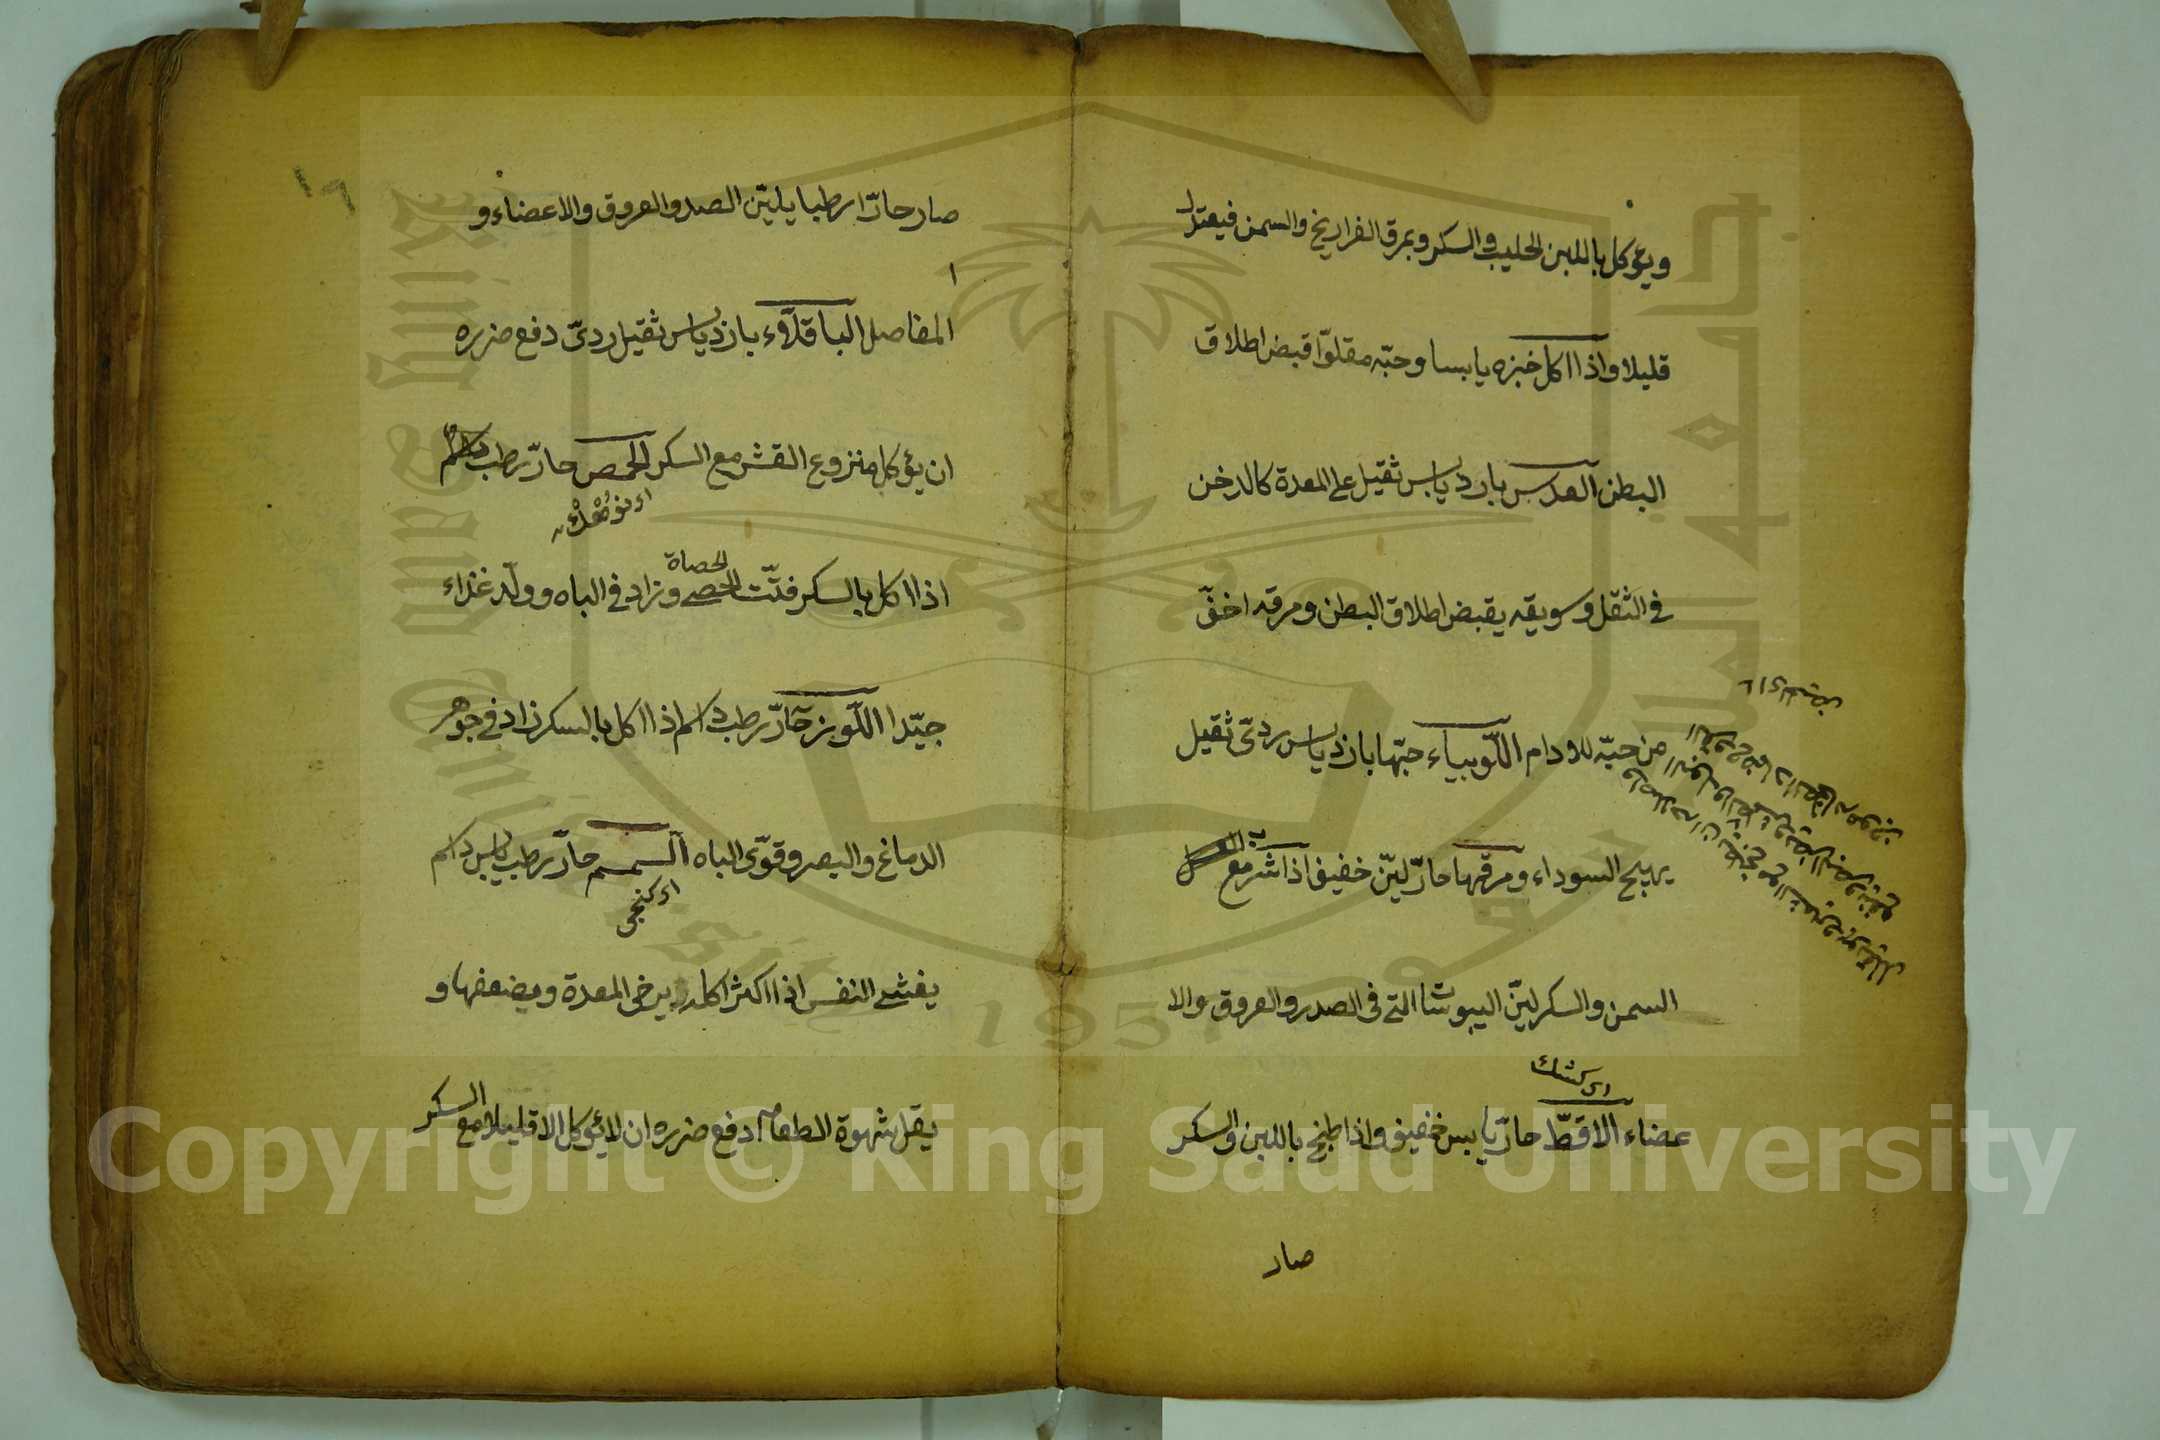 ويؤكل باللبن الحليب والسكر وبمرق الفراريخ والسمن فيعتدل
قليلا واذا اكل خبزه يابسا وحبّه مقلوّا قبض اطلاق
البطن العدس بارد يابس ثقيل على المعدة كالدخن
في الثقل وسويقه يقبض اطلاق البطن ومرقه اخفّ
من حبّه للادام اللّوبياء حبّها بارد يابس ردىّ ثقيل
يهيج السوداء ومرقها حارّ ليّن خفيف اذا شرّ مع
السمن والسكر ليّن اليبوشات التى فى الصدر والعروق والا
اى كشك
عضاء الاقطّ حارّ يابس خفيف واذا طبخ باللبن والسكر
صار
صار حارّا رطبا يليّن الصدر والعروق والاعضاء و
المفاصل الباقلّاء بارد يابس ثقيل ردىّ دفع ضرره
ان يؤكل منزوع القشر مع السكر الحمص حارّ رطب
اى نوهد
الحصاة
اذا اكل بالسكر فتّت الحصى وزاد فى الباه وولّد غذاء
جيّدا اللّوز حارّ رطب دسم اذا اكل بالسكر زاد فى جوهر
الدماغ والبصر وقوّى الباه السمسم حارّ رطب يابس دسم
اى كنجى
يغشى النفس اذا اكثر اكله يرخى المعدة ويضعفها و
يقل شهوة الطعام دفع ضرره ان لا يؤكل الا قليلا مع السكر
١٩
جامعة الملك سعود
King Saud University
1957
Copyright © King Saud University